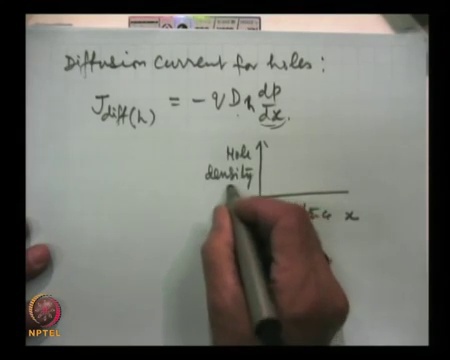 Diffusion current for holes :
J diff(h) = - q D h dp/dx.
Hole
density
x
NPTEL